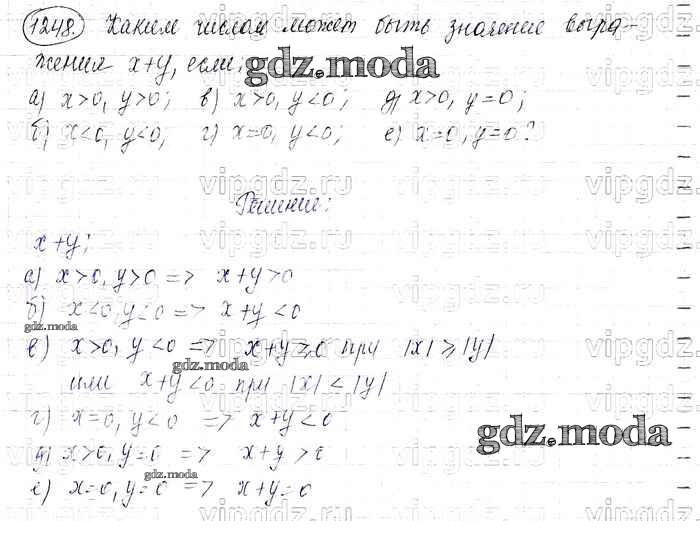 1248. Каким числом может быть значение выра-
жения x+y, если:
gdz.moda
а) x>0, y>0; в) x>0, y<0; д) x>0, y=0;
б) x<0, y<0; г) x=0, y<0; е) x=0, y=0?
vipgdz.ru
Решение:
x+y;
а) x>0, y>0 => x+y>0
б) x<0, y<0 => x+y<0
gdz.moda
в) x>0, y<0 => x+y≥0 при |x|≥|y|
gdz.moda
или x+y<0 при |x|<|y|
г) x=0, y<0 => x+y<0
gdz.moda
д) x>0, y=0 => x+y>0
gdz.moda
е) x=0, y=0 => x+y=0